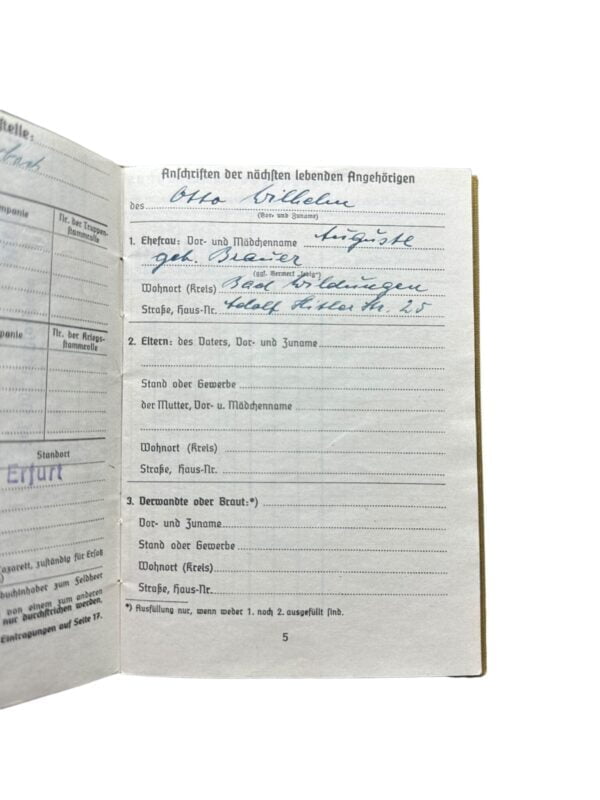 stelle:
mpanie
Nr. der Truppen-
stammrolle
panie
Nr. der Kriegs-
stammrolle
Standort
Erfurt
Lazarett, zuständig für Ersatz
buchinhaber zum Feldheer
von einem zum anderen
nur durchstrichen werden.
Eintragungen auf Seite 17.
Anschriften der nächsten lebenden Angehörigen
des Otto Wilhelm
(Vor- und Zuname)
1. Ehefrau: Vor- und Mädchenname Auguste
geb. Brauer
(ggf. Vermerk „ledig“)
Wohnort (Kreis) Bad Wildungen
Straße, Haus-Nr. Adolf Hitler Str. 25
2. Eltern: des Vaters, Vor- und Zuname
Stand oder Gewerbe
der Mutter, Vor- u. Mädchenname
Wohnort (Kreis)
Straße, Haus-Nr.
3. Verwandte oder Braut:*)
Vor- und Zuname
Stand oder Gewerbe
Wohnort (Kreis)
Straße, Haus-Nr.
*) Ausfüllung nur, wenn weder 1. noch 2. ausgefüllt sind.
5